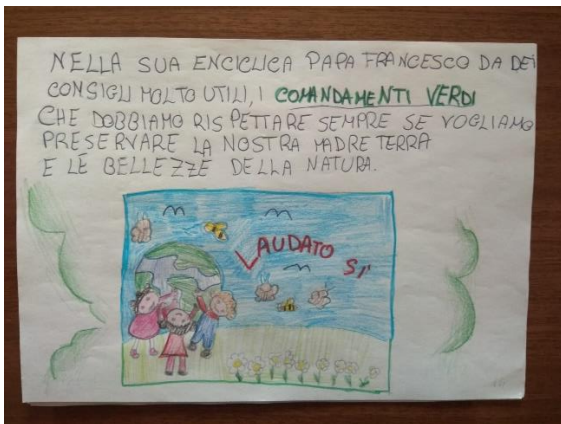 NELLA SUA ENCICLICA PAPA FRANCESCO DA DEI
CONSIGLI MOLTO UTILI, I COMANDAMENTI VERDI
CHE DOBBIAMO RISPETTARE SEMPRE SE VOGLIAMO
PRESERVARE LA NOSTRA MADRE TERRA
E LE BELLEZZE DELLA NATURA.
LAUDATO SI'